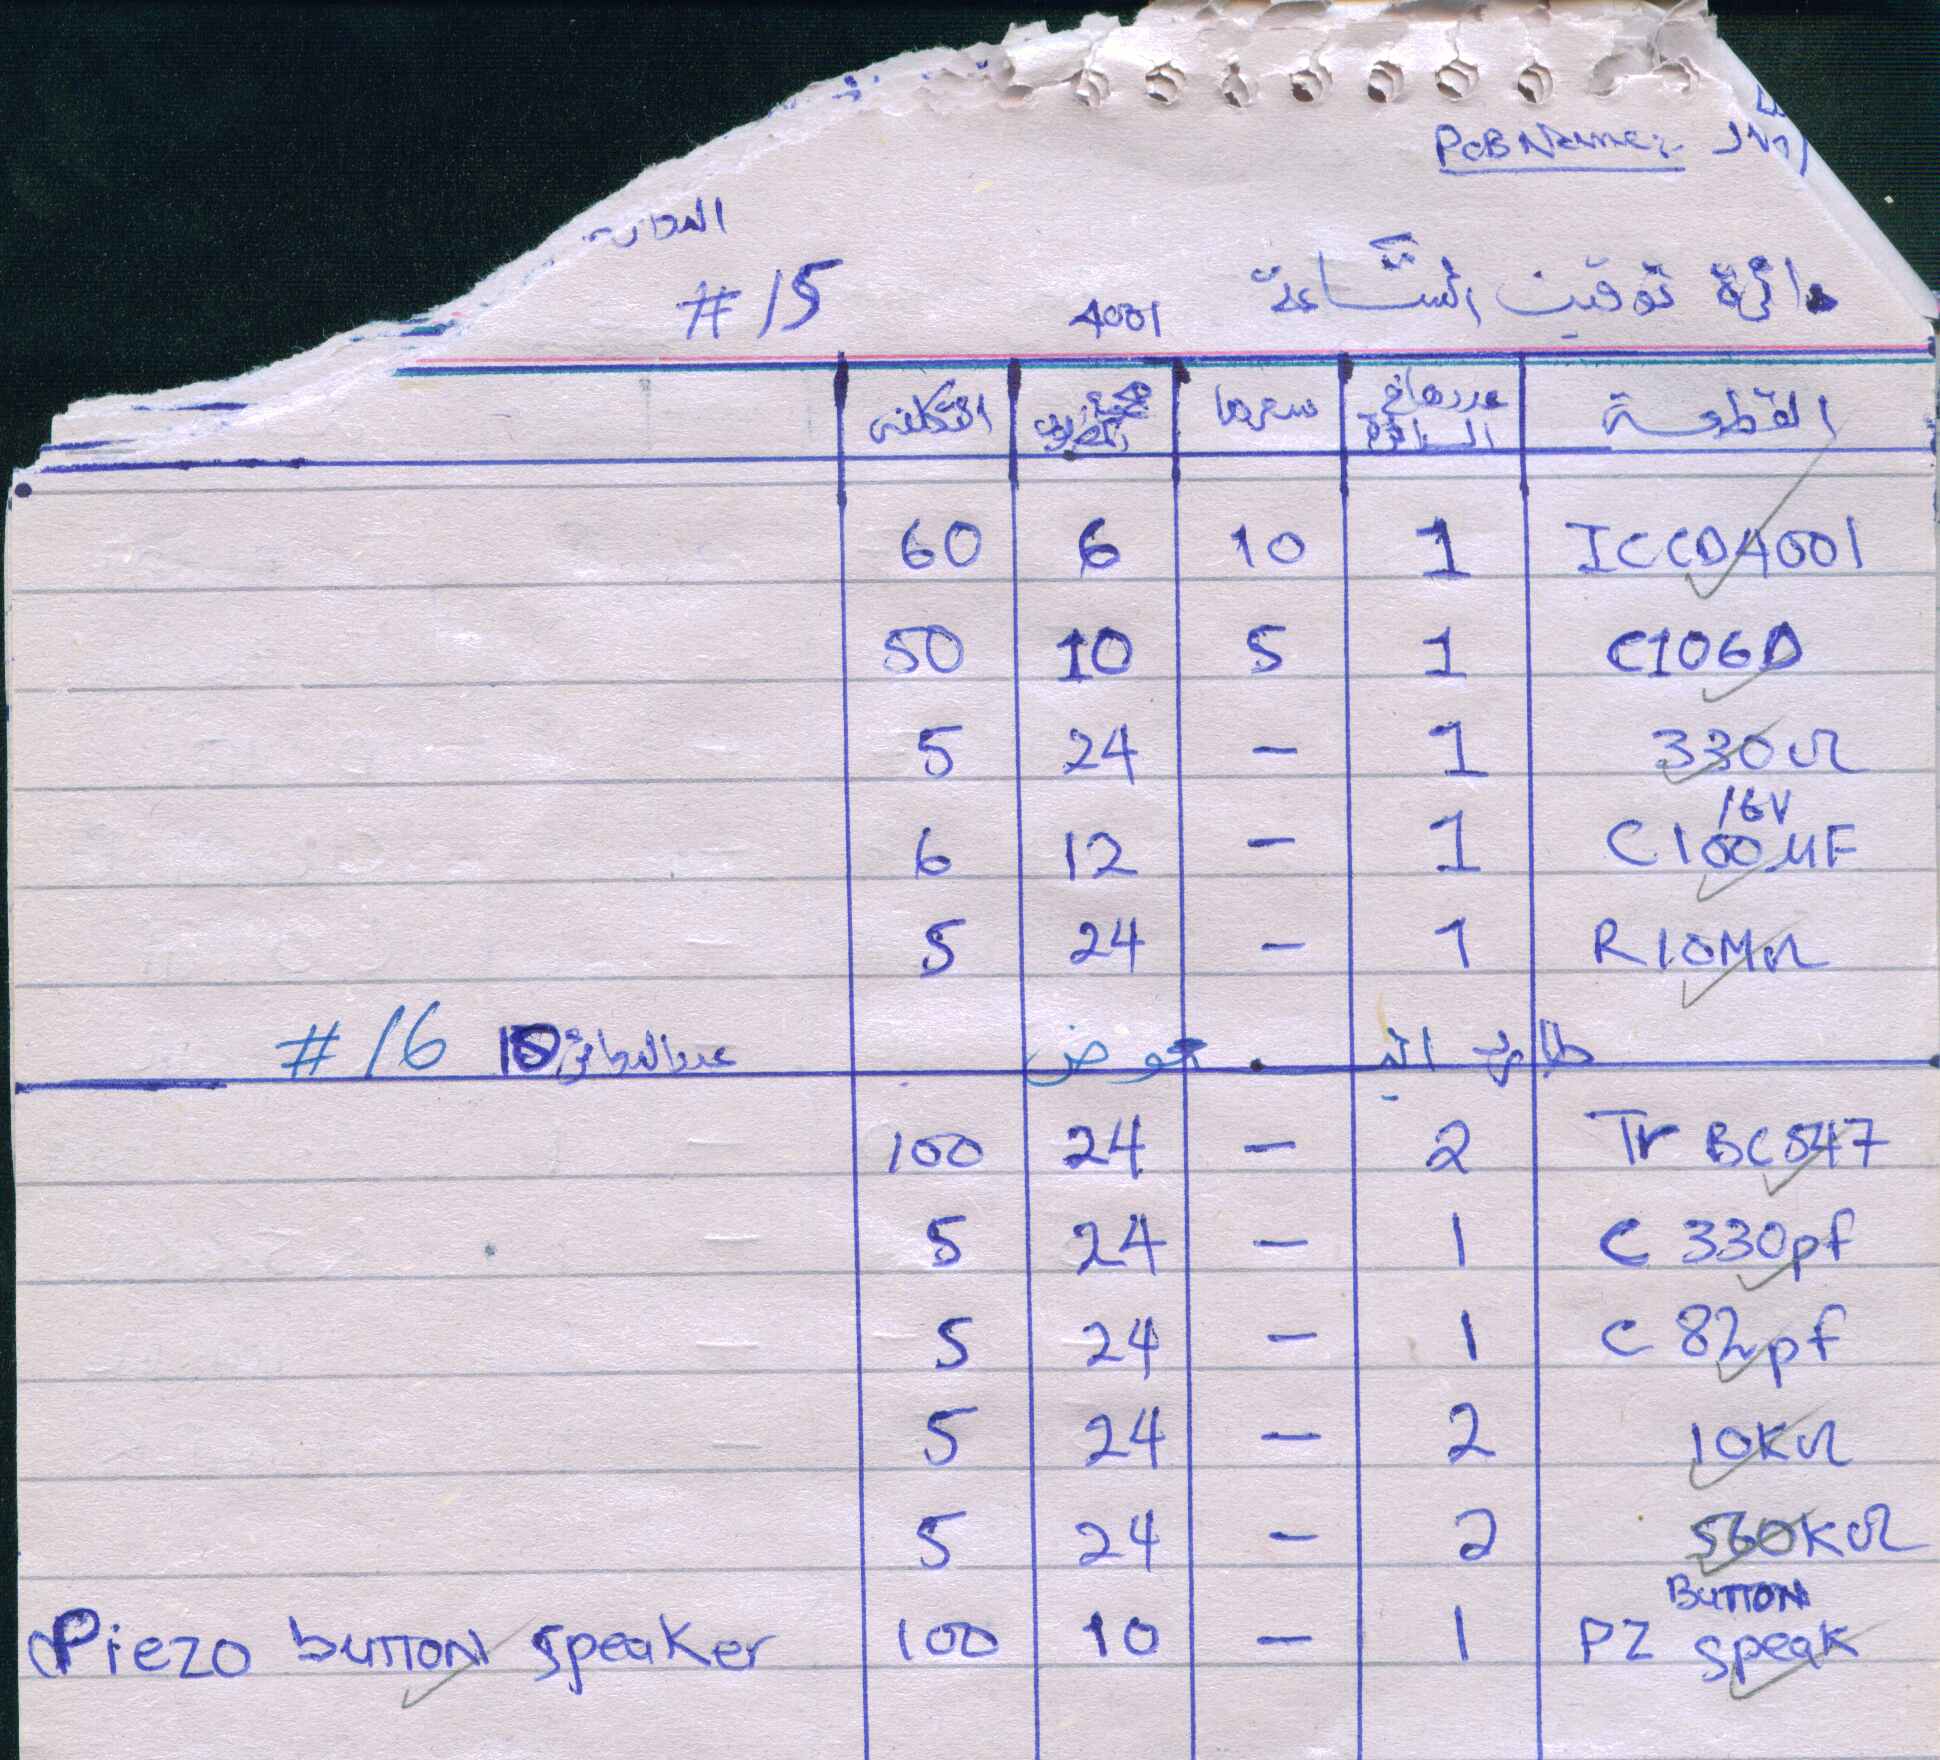 PCB Name:
#15 4001 دائرة توقيت الساعة
القطعة عددها في الدائرة سعرها التكلفة
ICCD4001 1 10 6 60
C106D 1 5 10 50
330Ω 1 - 24 5
16V
C100µF 1 - 12 6
R10MΩ 1 - 24 5
طارد البعوض #16
Tr BC547 2 - 24 100
C 330pf 1 - 24 5
C 82pf 1 - 24 5
10KΩ 2 - 24 5
560KΩ 2 - 24 5
BUTTON
PZ speak 1 - 10 100 Piezo BUTTON speaker